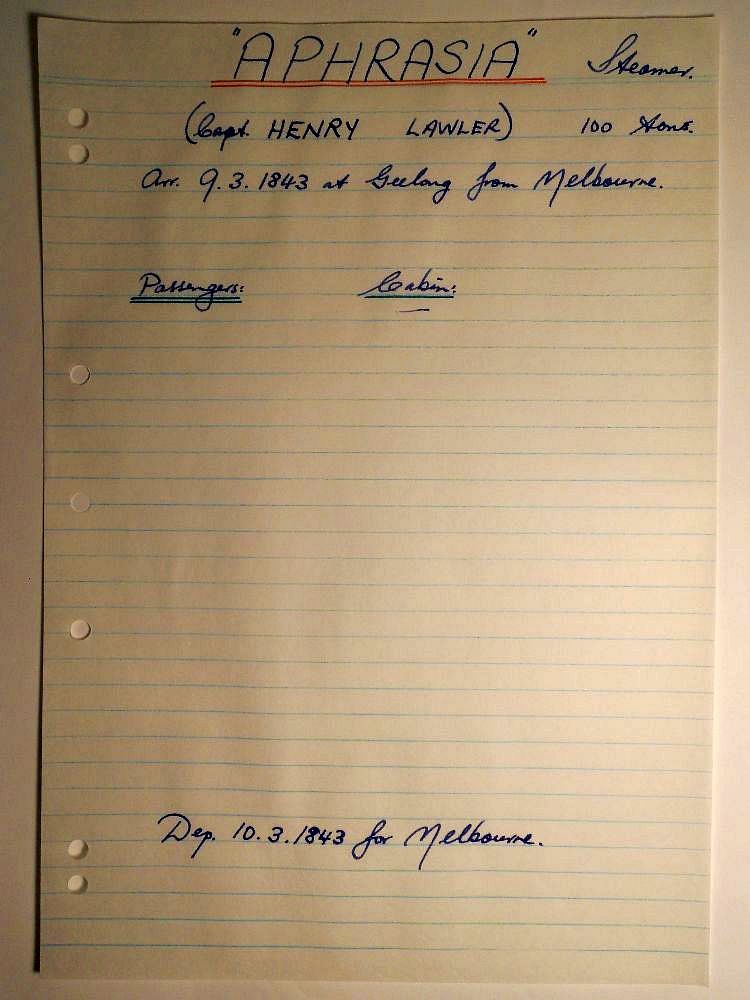 "APHRASIA" Steamer.
(Capt. HENRY LAWLER) 100 tons.
Arr. 9.3.1843 at Geelong from Melbourne.
Passengers: Cabin:
—
Dep. 10.3.1843 for Melbourne.